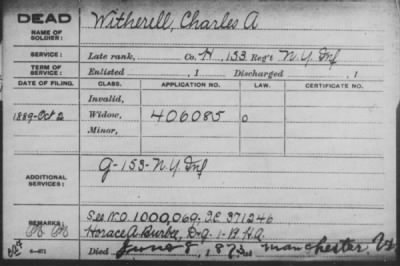 DEAD
NAME OF SOLDIER: Witherell, Charles A
SERVICE: Late rank, Co. H, 153 Reg't N.Y. Inf
TERM OF SERVICE: Enlisted , 1 Discharged , 1
DATE OF FILING. CLASS. APPLICATION NO. LAW. CERTIFICATE NO.
Invalid,
1889-Oct 2 Widow, 406085 O
Minor,
ADDITIONAL SERVICES: G-153-N.Y. Inf
REMARKS: See W.O. 1000,069. I.C 371246
Horace A. Burke, D.G. 1-19. H.A.
Died June 8, 1873, at Manchester, Vt